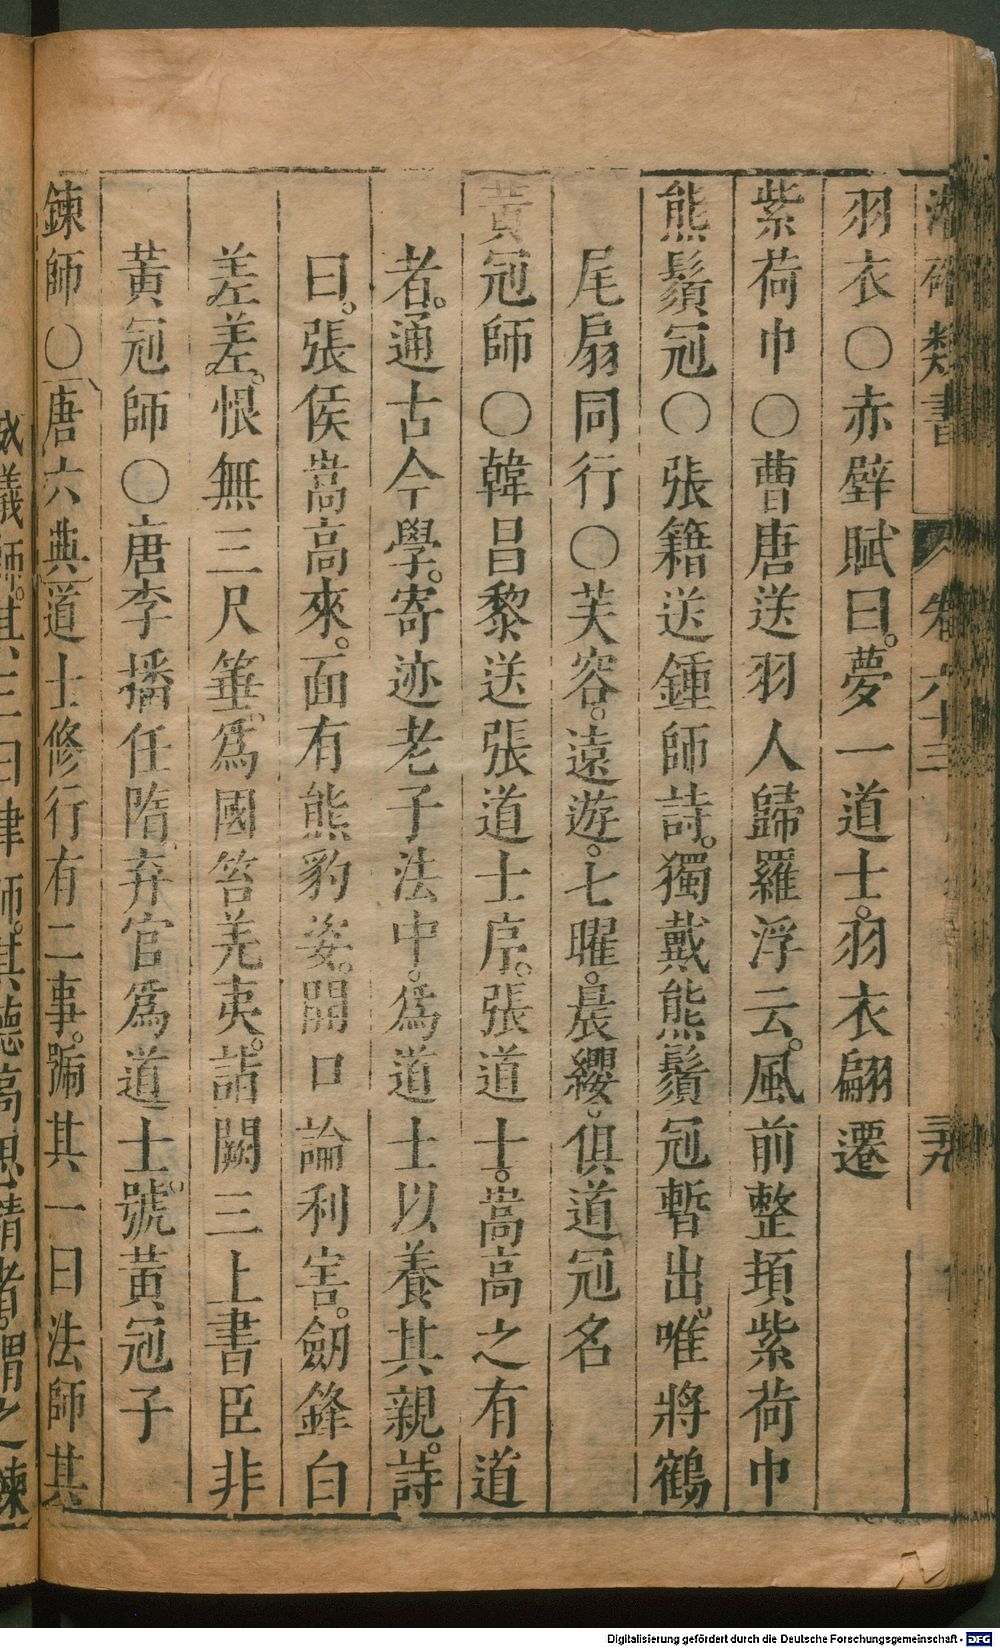 類書 卷六十三
羽衣○赤壁賦曰。夢一道士。羽衣翩遷
紫荷巾○曹唐送羽人歸羅浮云。風前整頊紫荷巾
熊鬚冠○張籍送鍾師詩。獨戴熊鬚冠暫出。唯將鶴
尾扇同行○芙容。遠遊。七曜。晨纓。俱道冠名
黃冠師○韓昌黎送張道士序。張道士。嵩高之有道
者。通古今學。寄迹老子法中。爲道士以養其親。詩
曰。張侯嵩高來。面有熊豹姿。開口論利害。劒鋒白
差差。恨無三尺箠、爲國笞羌夷。詣闕三上書臣非
黃冠師○唐李播任隋、弃官爲道士。號黃冠子
鍊師○唐六典道士修行有二事。號其一曰法師其
威儀師。其三曰律師。其德高思精者。謂之鍊
Digitalisierung gefördert durch die Deutsche Forschungsgemeinschaft - DFG